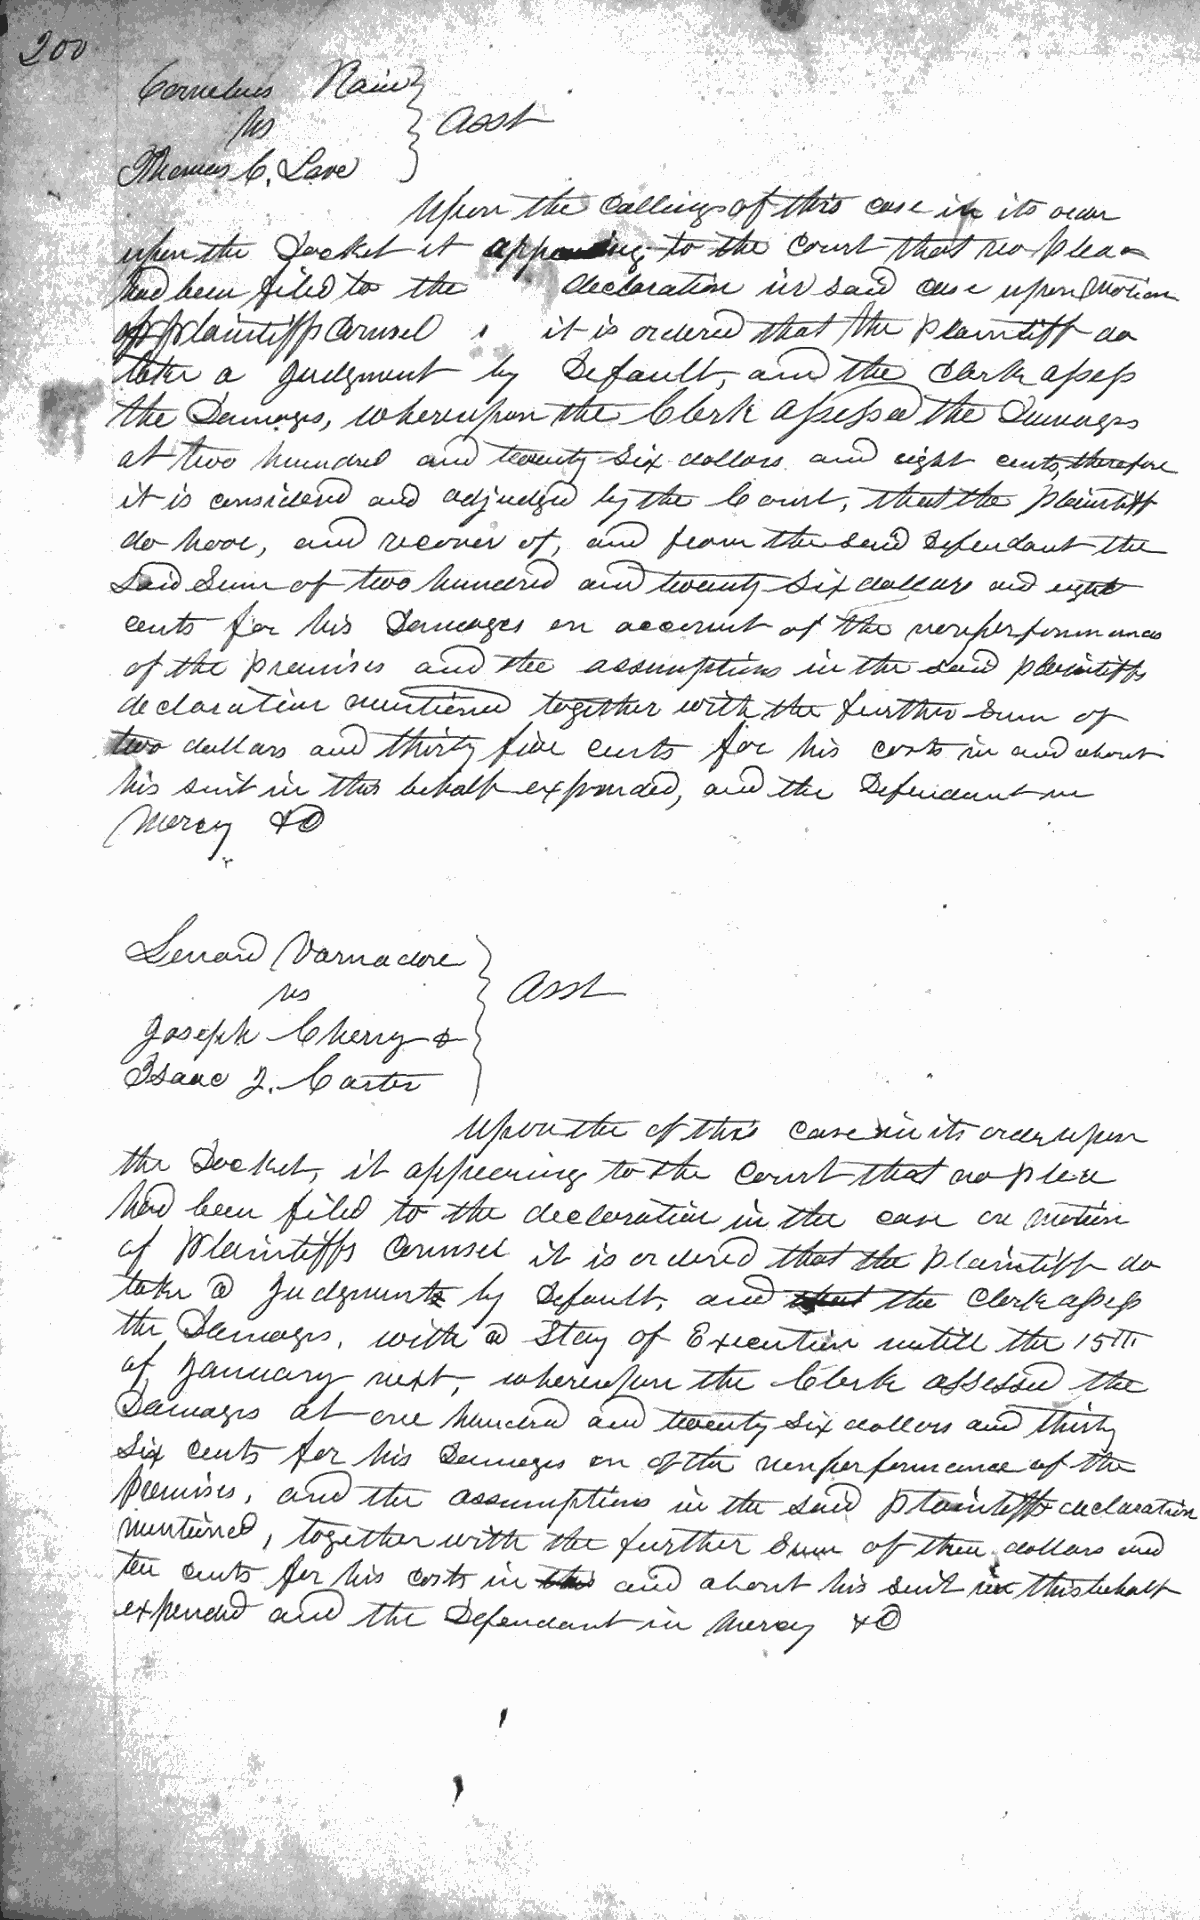 200
Cornelius Rain
vs
Asst
Thomas C. Love
Upon the calling of this case in its order
upon the Docket it appearing to the Court that no plea
had been filed to the declaration in said case upon Motion
of Plaintiffs Counsel it is ordered that the Plaintiff do
take a Judgment by Default, and the Clerk assess
the Damages, whereupon the Clerk assessed the Damages
at two hundred and twenty six dollars and eight cents, therefore
it is considered and adjudged by the Court, that the plaintiff
do have, and recover of, and from the said Defendant the
said Sum of two hundred and twenty six dollars and eight
cents for his Damages on account of the nonperformances
of the premises and the assumptions in the said plaintiffs
declaration mentioned together with the further Sum of
two dollars and thirty five cents for his costs in and about
his suit in this behalf expended, and the Defendant in
Mercy &C
Lenard Varnadore
vs
Asst
Joseph Cherry &
Isaac J. Carter
Upon the of this case in its order upon
the Docket, it appearing to the Court that no plea
had been filed to the declaration in the case on motion
of Plaintiffs Counsel it is ordered that the Plaintiff do
take a Judgment by Default, and that the Clerk assess
the Damages, with a Stay of Execution untill the 15th
of January next, whereupon the Clerk assessed the
Damages at one hundred and twenty six dollars and thirty
six cents for his Damages on of the nonperformance of the
premises, and the assumptions in the said plaintiffs declaration
mentioned, together with the further Sum of three dollars and
ten cents for his costs in this and about his suit in this behalf
expended and the Defendant in Mercy &C